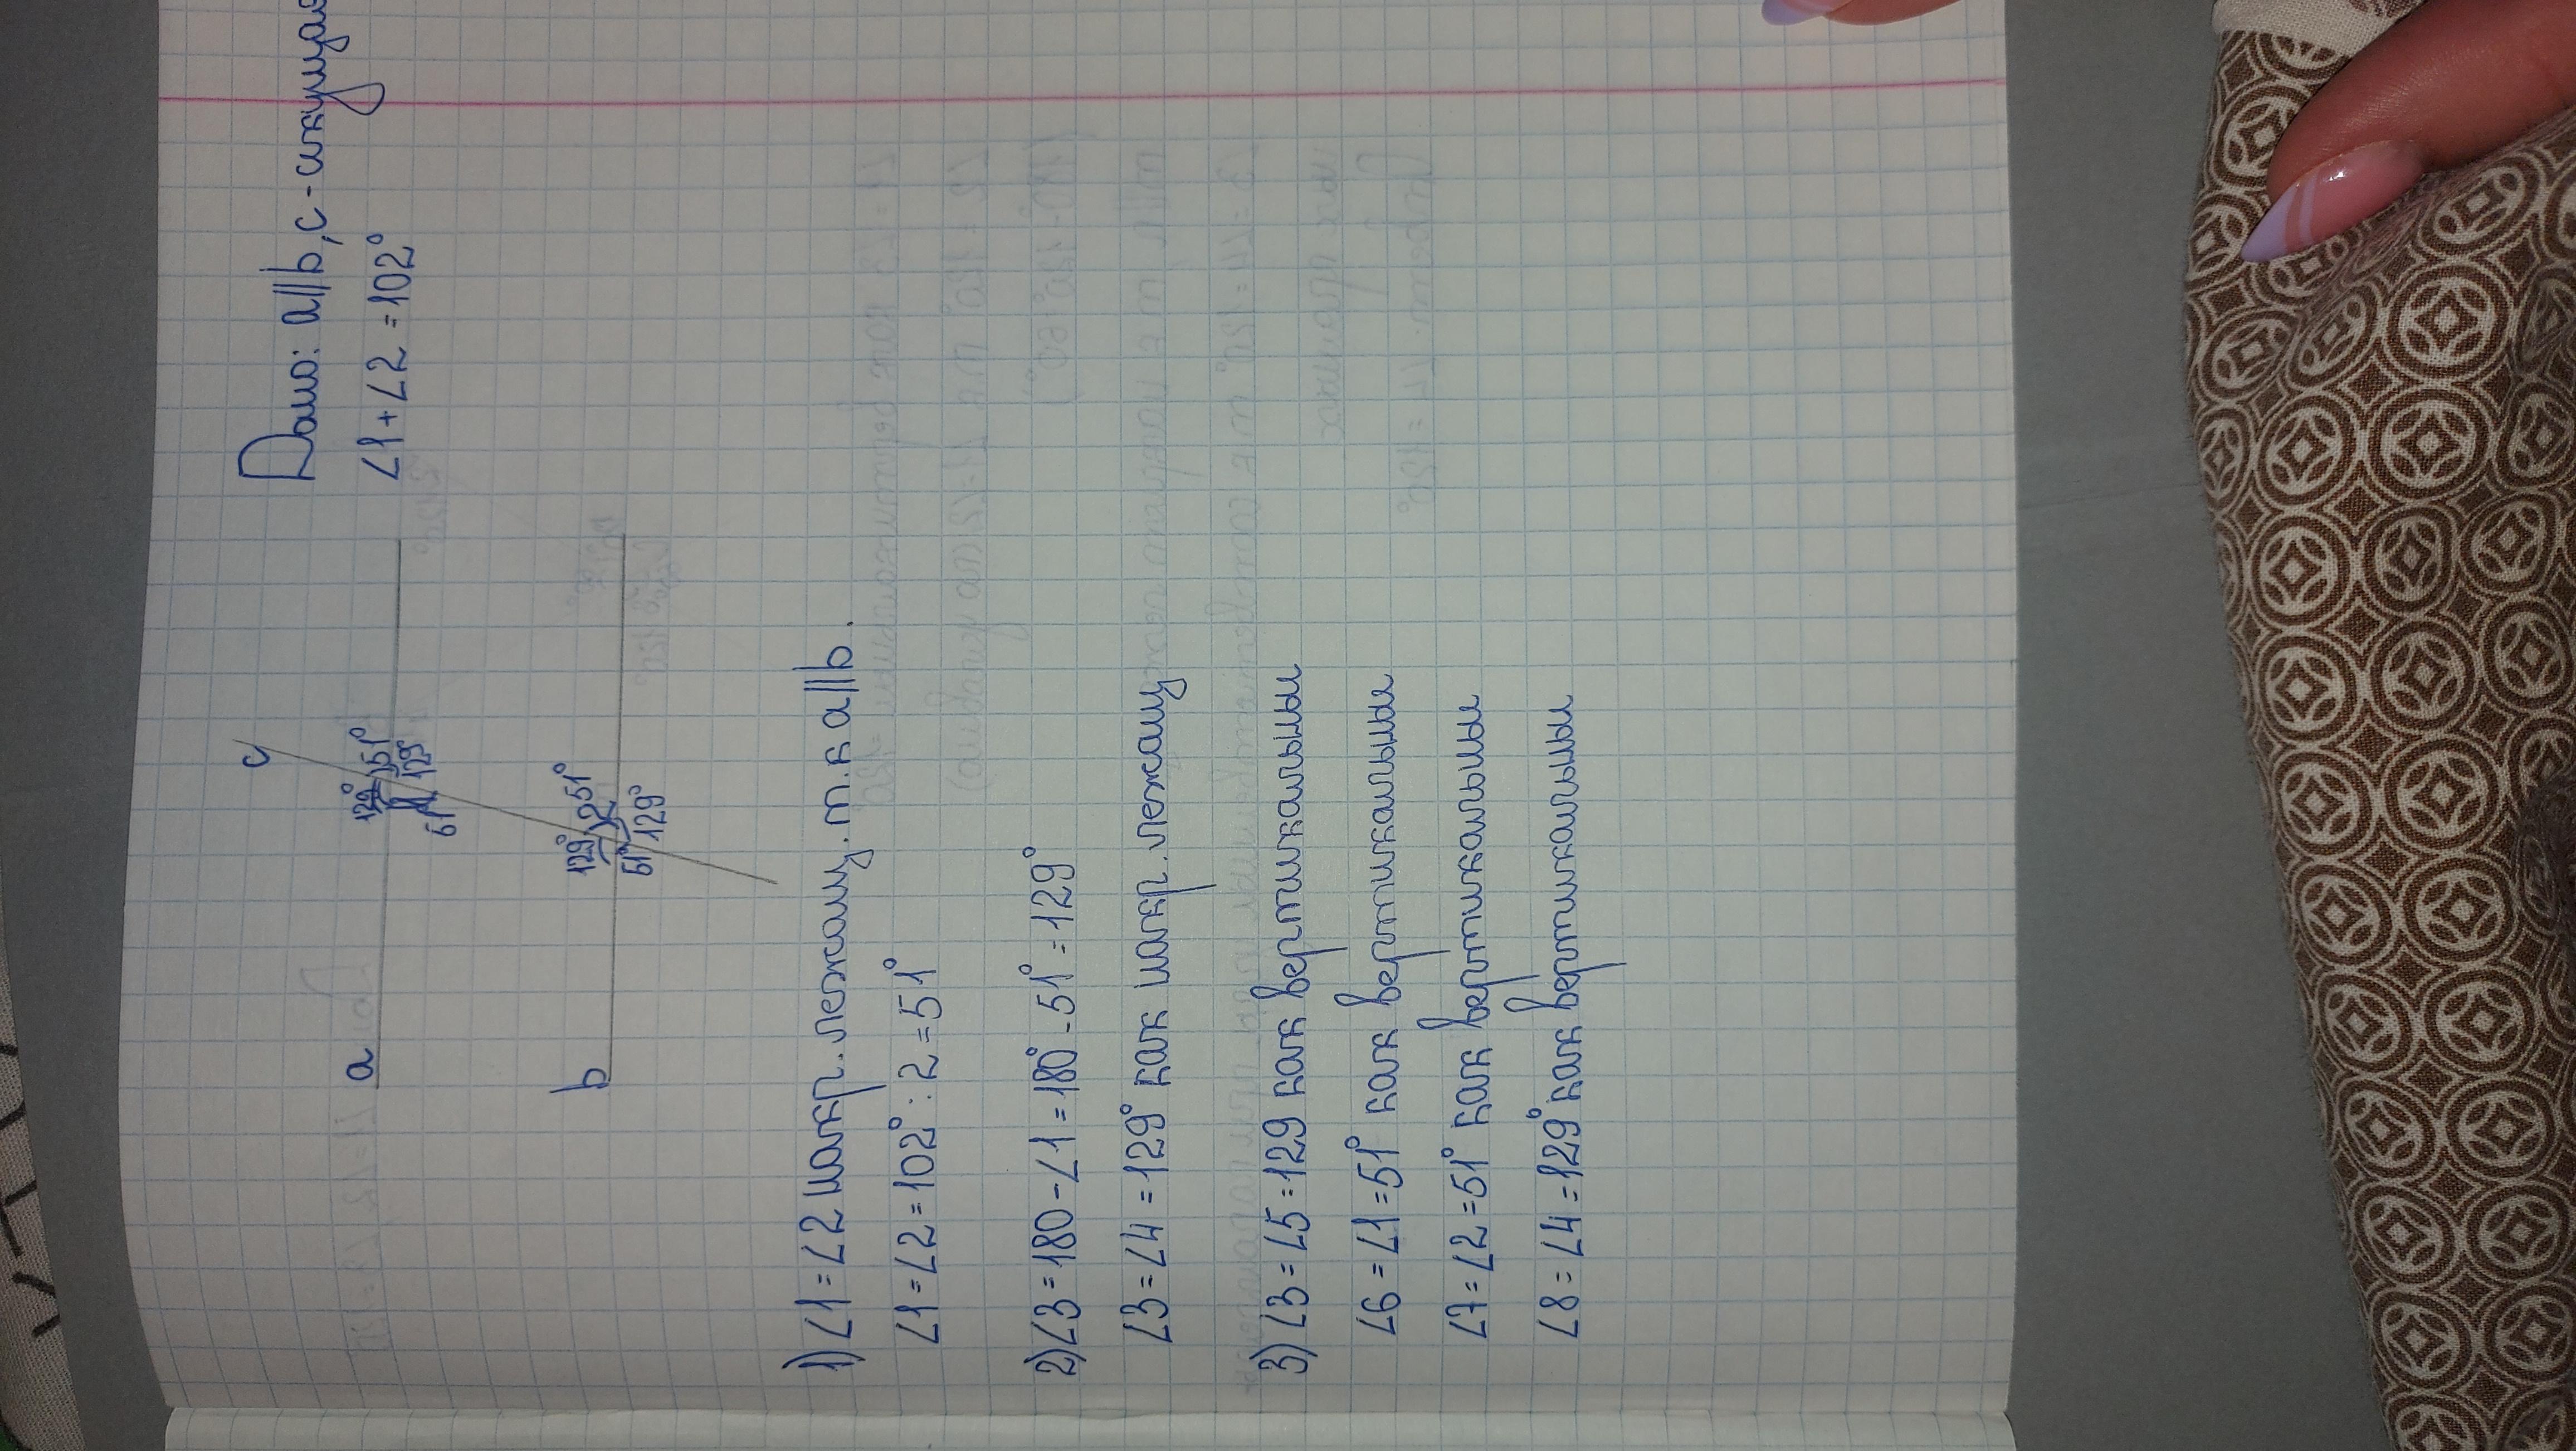 Дано: a||b, c-секущая
∠1+∠2=102°
c
129° 51°
a
51° 129°
129° 2 51°
b
51° 129°
1) ∠1=∠2 накр.лежащ. т.к a||b.
∠1=∠2=102°:2=51°
2) ∠3=180-∠1=180°-51°=129°
∠3=∠4=129° как накр.лежащ
3) ∠3=∠5=129 как вертикальные
∠6=∠1=51° как вертикальные
∠7=∠2=51° как вертикальные
∠8=∠4=129° как вертикальные